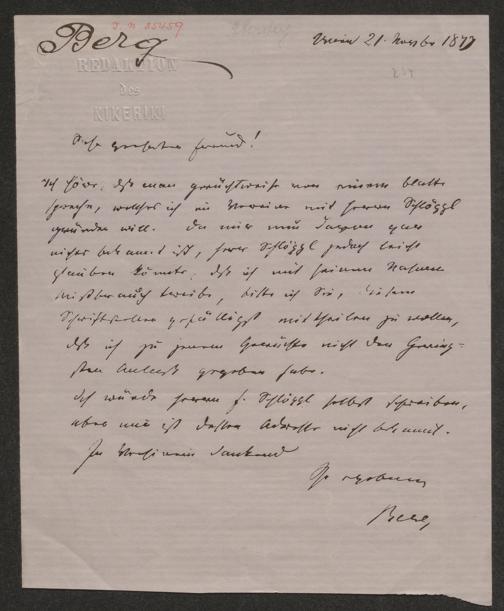 J. N. 25459
Berg
Wien 21. Novbr 1877
REDAKTION
des
KIKERIKI
Sehr geehrter Freund!
Ich höre, daß man gerüchtweise von einem Blatte
spreche, welches ich im Vereine mit Herrn Schlögl
gründen will. Da mir nun davon gar
nichts bekannt ist, Herr Schlögl jedoch leicht
glauben könnte, daß ich mit seinem Namen
Mißbrauch treibe, bitte ich Sie, diesem
Schriftsteller gefälligst mittheilen zu wollen,
daß ich zu jenem Gerüchte nicht den Gering-
sten Anlaß gegeben habe.
Ich würde Herrn F. Schlögl selbst schreiben,
aber mir ist dessen Adresse nicht bekannt.
Im Vorhinein dankend
Ihr ergebener
Berg